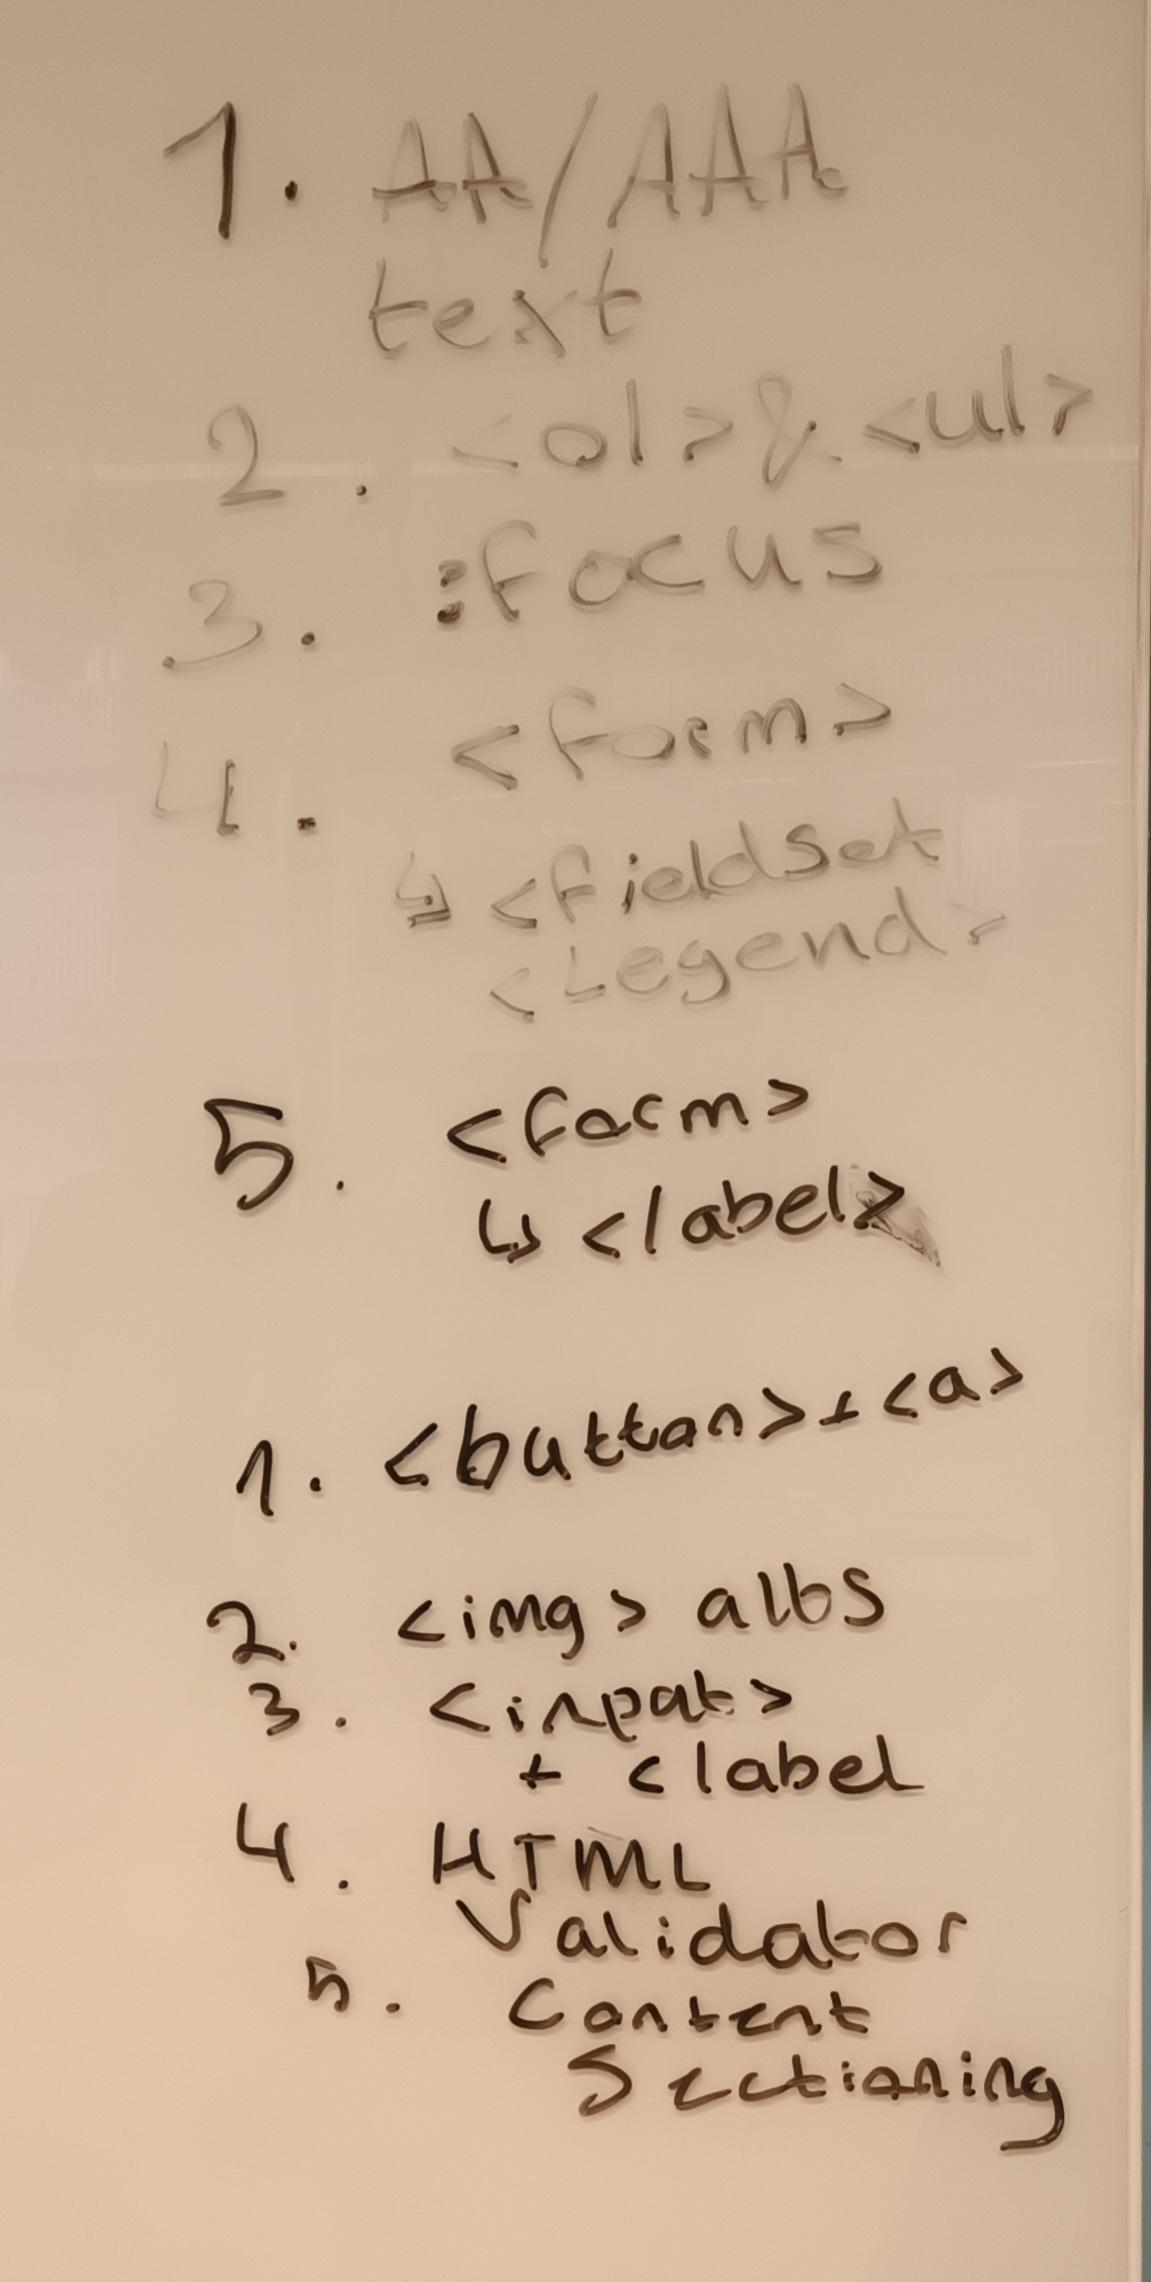 1. AA/AAA
text
2. <ol> & <ul>
3. :focus
4. <form>
↳ <fieldset
<Legend>
5. <form>
↳ <label>
1. <button> + <a>
2. <img> alts
3. <input>
+ <label
4. HTML
Validator
5. Content
Sectioning